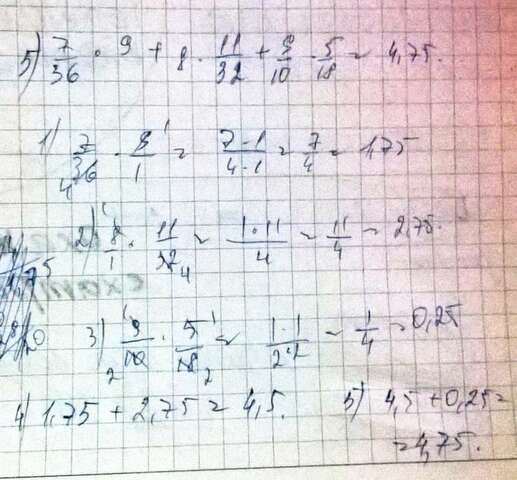 5) 7/36 · 9 + 8 · 11/32 + 9/10 · 5/18 = 4,75.
1) 7/36 4 · 9/1 1 = 7·1/4·1 = 7/4 = 1,75
2) 8/1 1 · 11/32 4 = 1·11/4 = 11/4 = 2,75.
3) 9/10 1 2 · 5/18 1 2 = 1·1/2·2 = 1/4 = 0,25
4) 1,75 + 2,75 = 4,5. 5) 4,5 + 0,25 =
= 4,75.